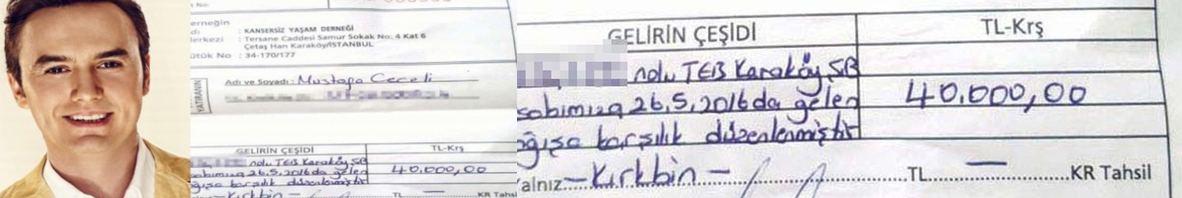 No
erneğin
dı : KANSERSİZ YAŞAM DERNEĞİ
erkezi : Tersane Caddesi Samur Sokak No: 4 Kat 6
Çetaş Han Karaköy/İSTANBUL
ütük No : 34-170/177
YATIRANIN
Adı ve Soyadı : Mustafa Ceceli
GELİRİN ÇEŞİDİ TL-Krş
nolu TEB Karaköy ŞB
sabımıza 26.5.2016 da gelen 40.000,00
ğışa karşılık düzenlenmiştir
-Kırkbin- TL —
GELİRİN ÇEŞİDİ TL-Krş
nolu TEB Karaköy ŞB
sabımıza 26.5.2016 da gelen 40.000,00
ağışa karşılık düzenlenmiştir
alnız -Kırkbin- TL — KR Tahsil